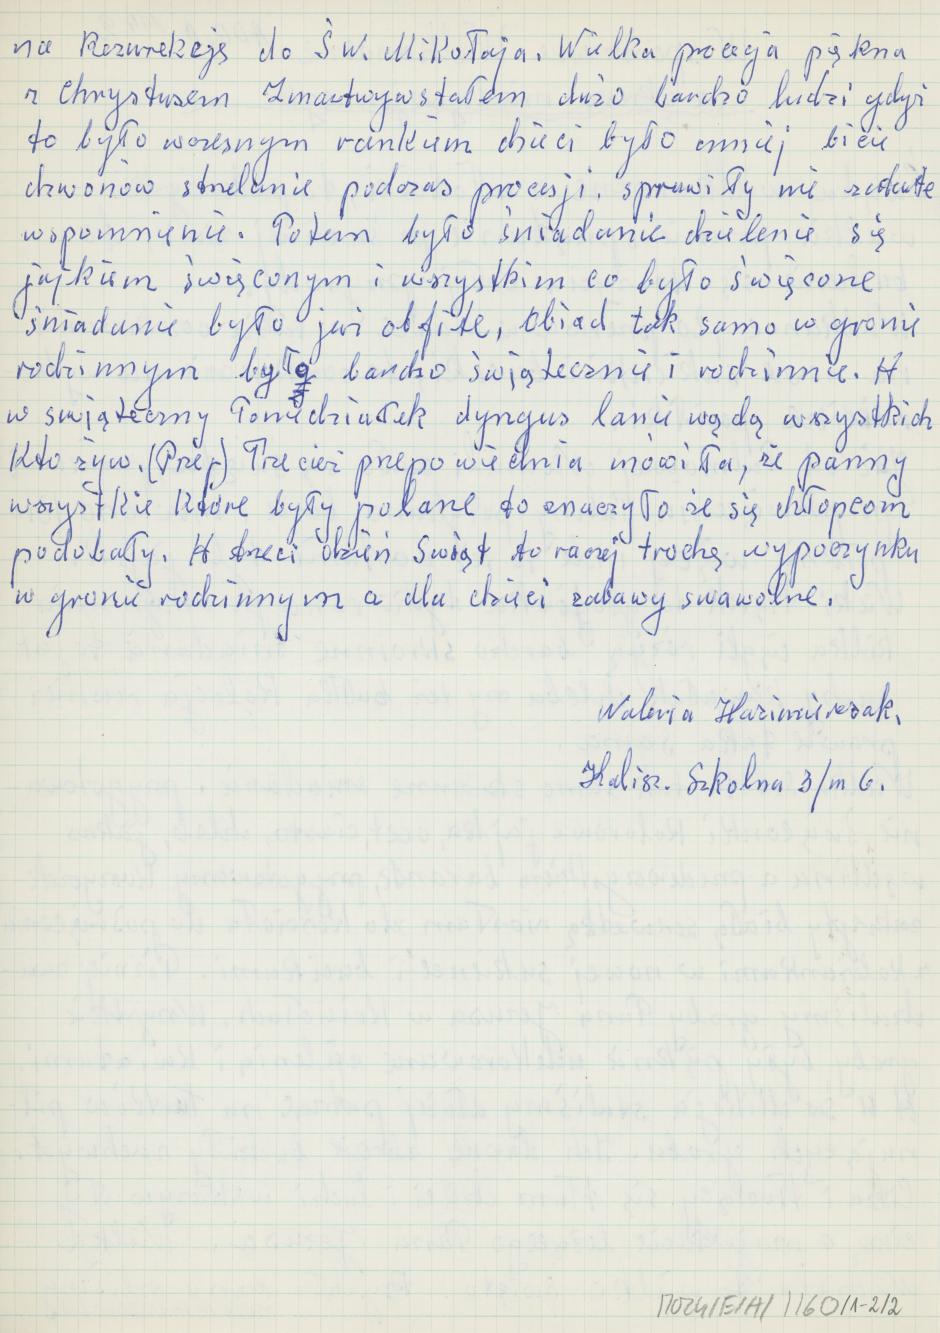 na Rezurekcję do Św. Mikołaja. Wielka procesja piękna
z Chrystusem Zmartwywstałem dużo bardzo ludzi gdyż
to było wczesnym rankiem dzieci było mniej bicie
dzwonów strzelanie podczas procesji. sprawiły nie zatarte
wspomnienie. Potem było śniadanie dzielenie się
jajkiem święconym i wszystkim co było święcone
śniadanie było już obfite, Obiad tak samo w gronie
rodzinnym było bardzo świątecznie i rodzinnie. A
w swiąteczny Poniedziałek dyngus lanie wądą wszystkich
Kto żyw. (Przep) Trecież przepowiednia mówiła, że panny
wszystkie które były polane to znaczyło że się chłopcom
podobały. A trzeci dzień Swiąt to raczej trochę wypoczynku
w gronie rodzinnym a dla dzieci zabawy swawolne.
Waleria Kazimierczak.
Kalisz. Szkolna 3/m 6.
/E/A/ 1160/1-2/2